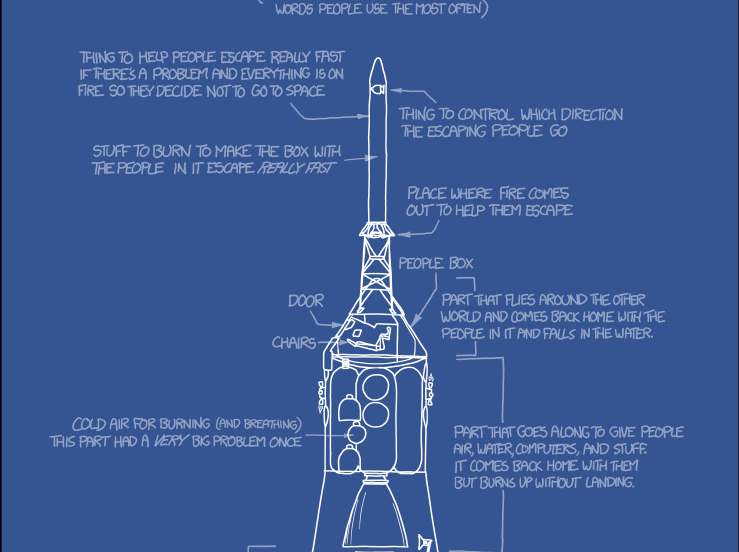 WORDS PEOPLE USE THE MOST OFTEN)
THING TO HELP PEOPLE ESCAPE REALLY FAST
IF THERE'S A PROBLEM AND EVERYTHING IS ON
FIRE SO THEY DECIDE NOT TO GO TO SPACE
THING TO CONTROL WHICH DIRECTION
THE ESCAPING PEOPLE GO
STUFF TO BURN TO MAKE THE BOX WITH
THE PEOPLE IN IT ESCAPE REALLY FAST
PLACE WHERE FIRE COMES
OUT TO HELP THEM ESCAPE
PEOPLE BOX
DOOR
PART THAT FLIES AROUND THE OTHER
WORLD AND COMES BACK HOME WITH THE
PEOPLE IN IT AND FALLS IN THE WATER.
CHAIRS
COLD AIR FOR BURNING (AND BREATHING)
THIS PART HAD A VERY BIG PROBLEM ONCE
PART THAT GOES ALONG TO GIVE PEOPLE
AIR, WATER, COMPUTERS, AND STUFF.
IT COMES BACK HOME WITH THEM
BUT BURNS UP WITHOUT LANDING.